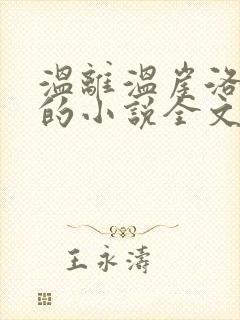 溫離溫崖洛
的小說全文
王永濤